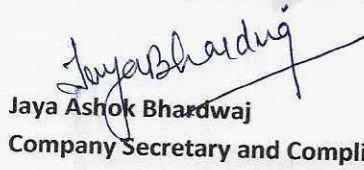 JayaBhardwaj
Jaya Ashok Bhardwaj
Company Secretary and Compli